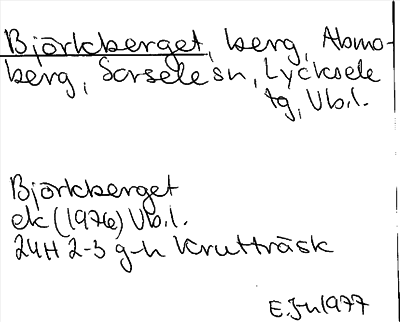 Björkberget, berg, Abmo-
berg, Sorsele sn, Lycksele
tg, Vb.l.
Björkberget
ek (1976) Vb.l.
24H 2-3 g-h Krutträsk
E.Jh 1977